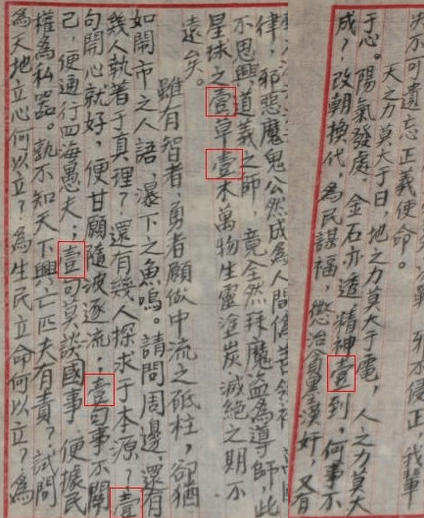 邪不侵正，我輩
不可遗忘正義使命。
天之力莫大于日，地之力莫大于電，人之力莫大
于心。陽氣發處，金石亦透，精神壹到，何事不
成？改朝換代，為民謀福，懲治貪墨漢奸，又有
律，邪惡魔鬼公然成為人間偽善領袖
不思興道義之師，竟全然拜魔盜為導師，此
星球之壹草壹木萬物生靈塗炭滅絕之期不
遠矣。
雖有智者、勇者願做中流之砥柱，卻猶
如開市之人語，瀑下之魚鳴。請問周邊，還有
幾人執着于真理？還有幾人探求于本源？壹
句開心就好，便甘願隨波逐流；壹句事不關
己，便通行四海愚夫；壹句莫談國事，便據民
權為私器。孰不知天下興亡匹夫有責？試問
為天地立心何以立？為生民立命何以立？為